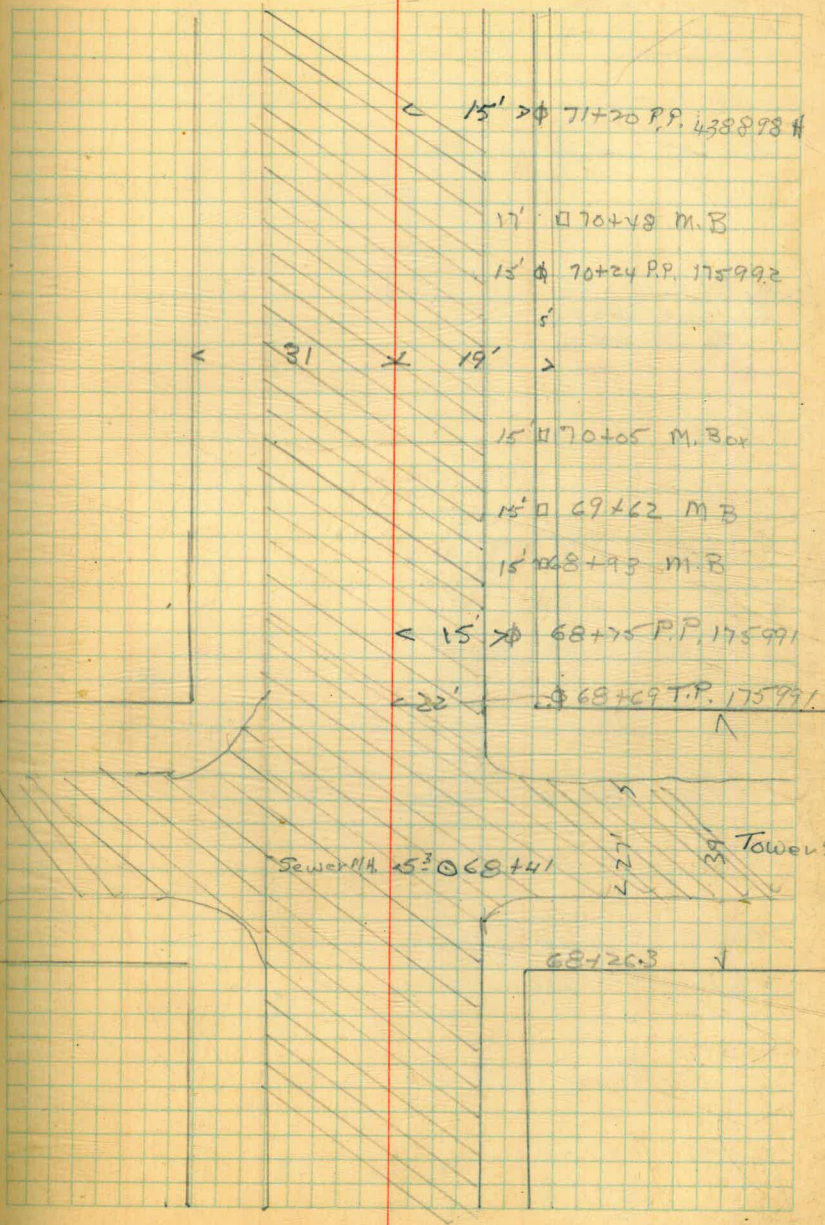 < 15' > ϕ 71+20 P.P. 438898 H
17' □ 70+48 M.B
15' ϕ 70+24 P.P. 175992
5'
< 31 × 19' >
15' □ 70+05 M. Box
15' □ 69+62 M B
15' □ 68+93 M.B
< 15' > ϕ 68+75 P.P. 175991
< 22' ϕ 68+69 T.P. 175991
< 27' >
39'
Tower
Sewer M.H. 5³ ⊙ 68+41
68+26.3